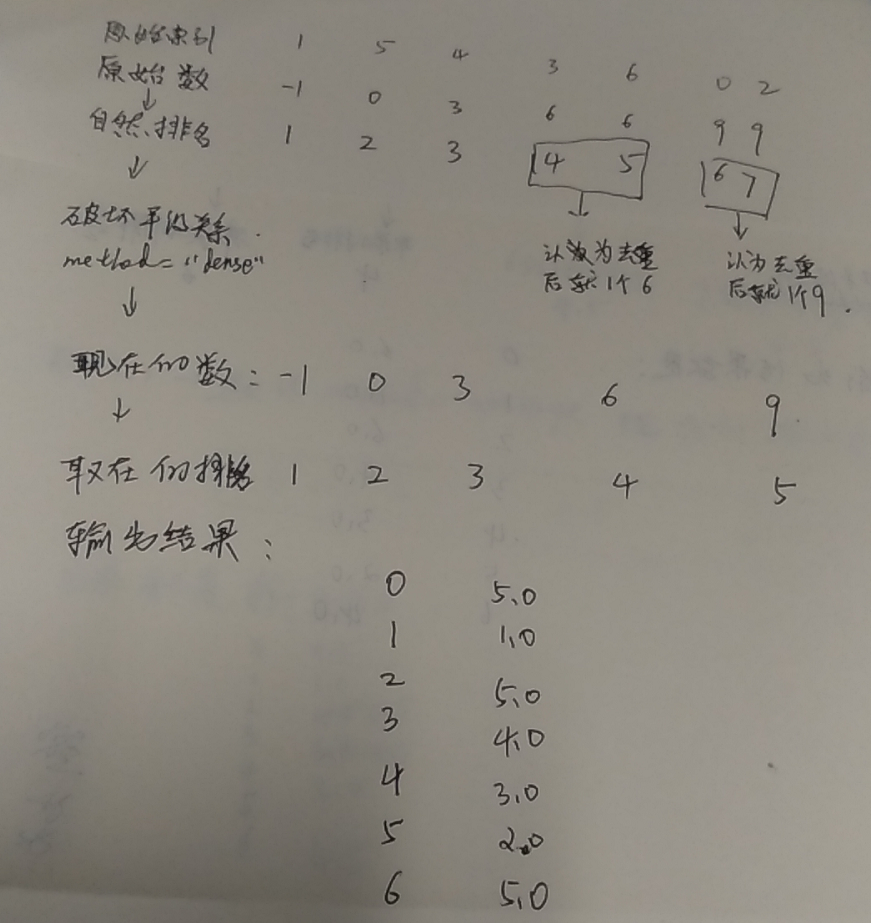 原始索引 1 5 4 3 6 0 2
原始数 -1 0 3 6 6 9 9
↓
自然排名 1 2 3 4 5 6 7
↓
破坏平级关系.
method="dense"
↓
认为去重
后就1个6
认为去重
后就1个9.
现在的数: -1 0 3 6 9
↓
现在的排名 1 2 3 4 5
输出结果:
0 5.0
1 1.0
2 5.0
3 4.0
4 3.0
5 2.0
6 5.0